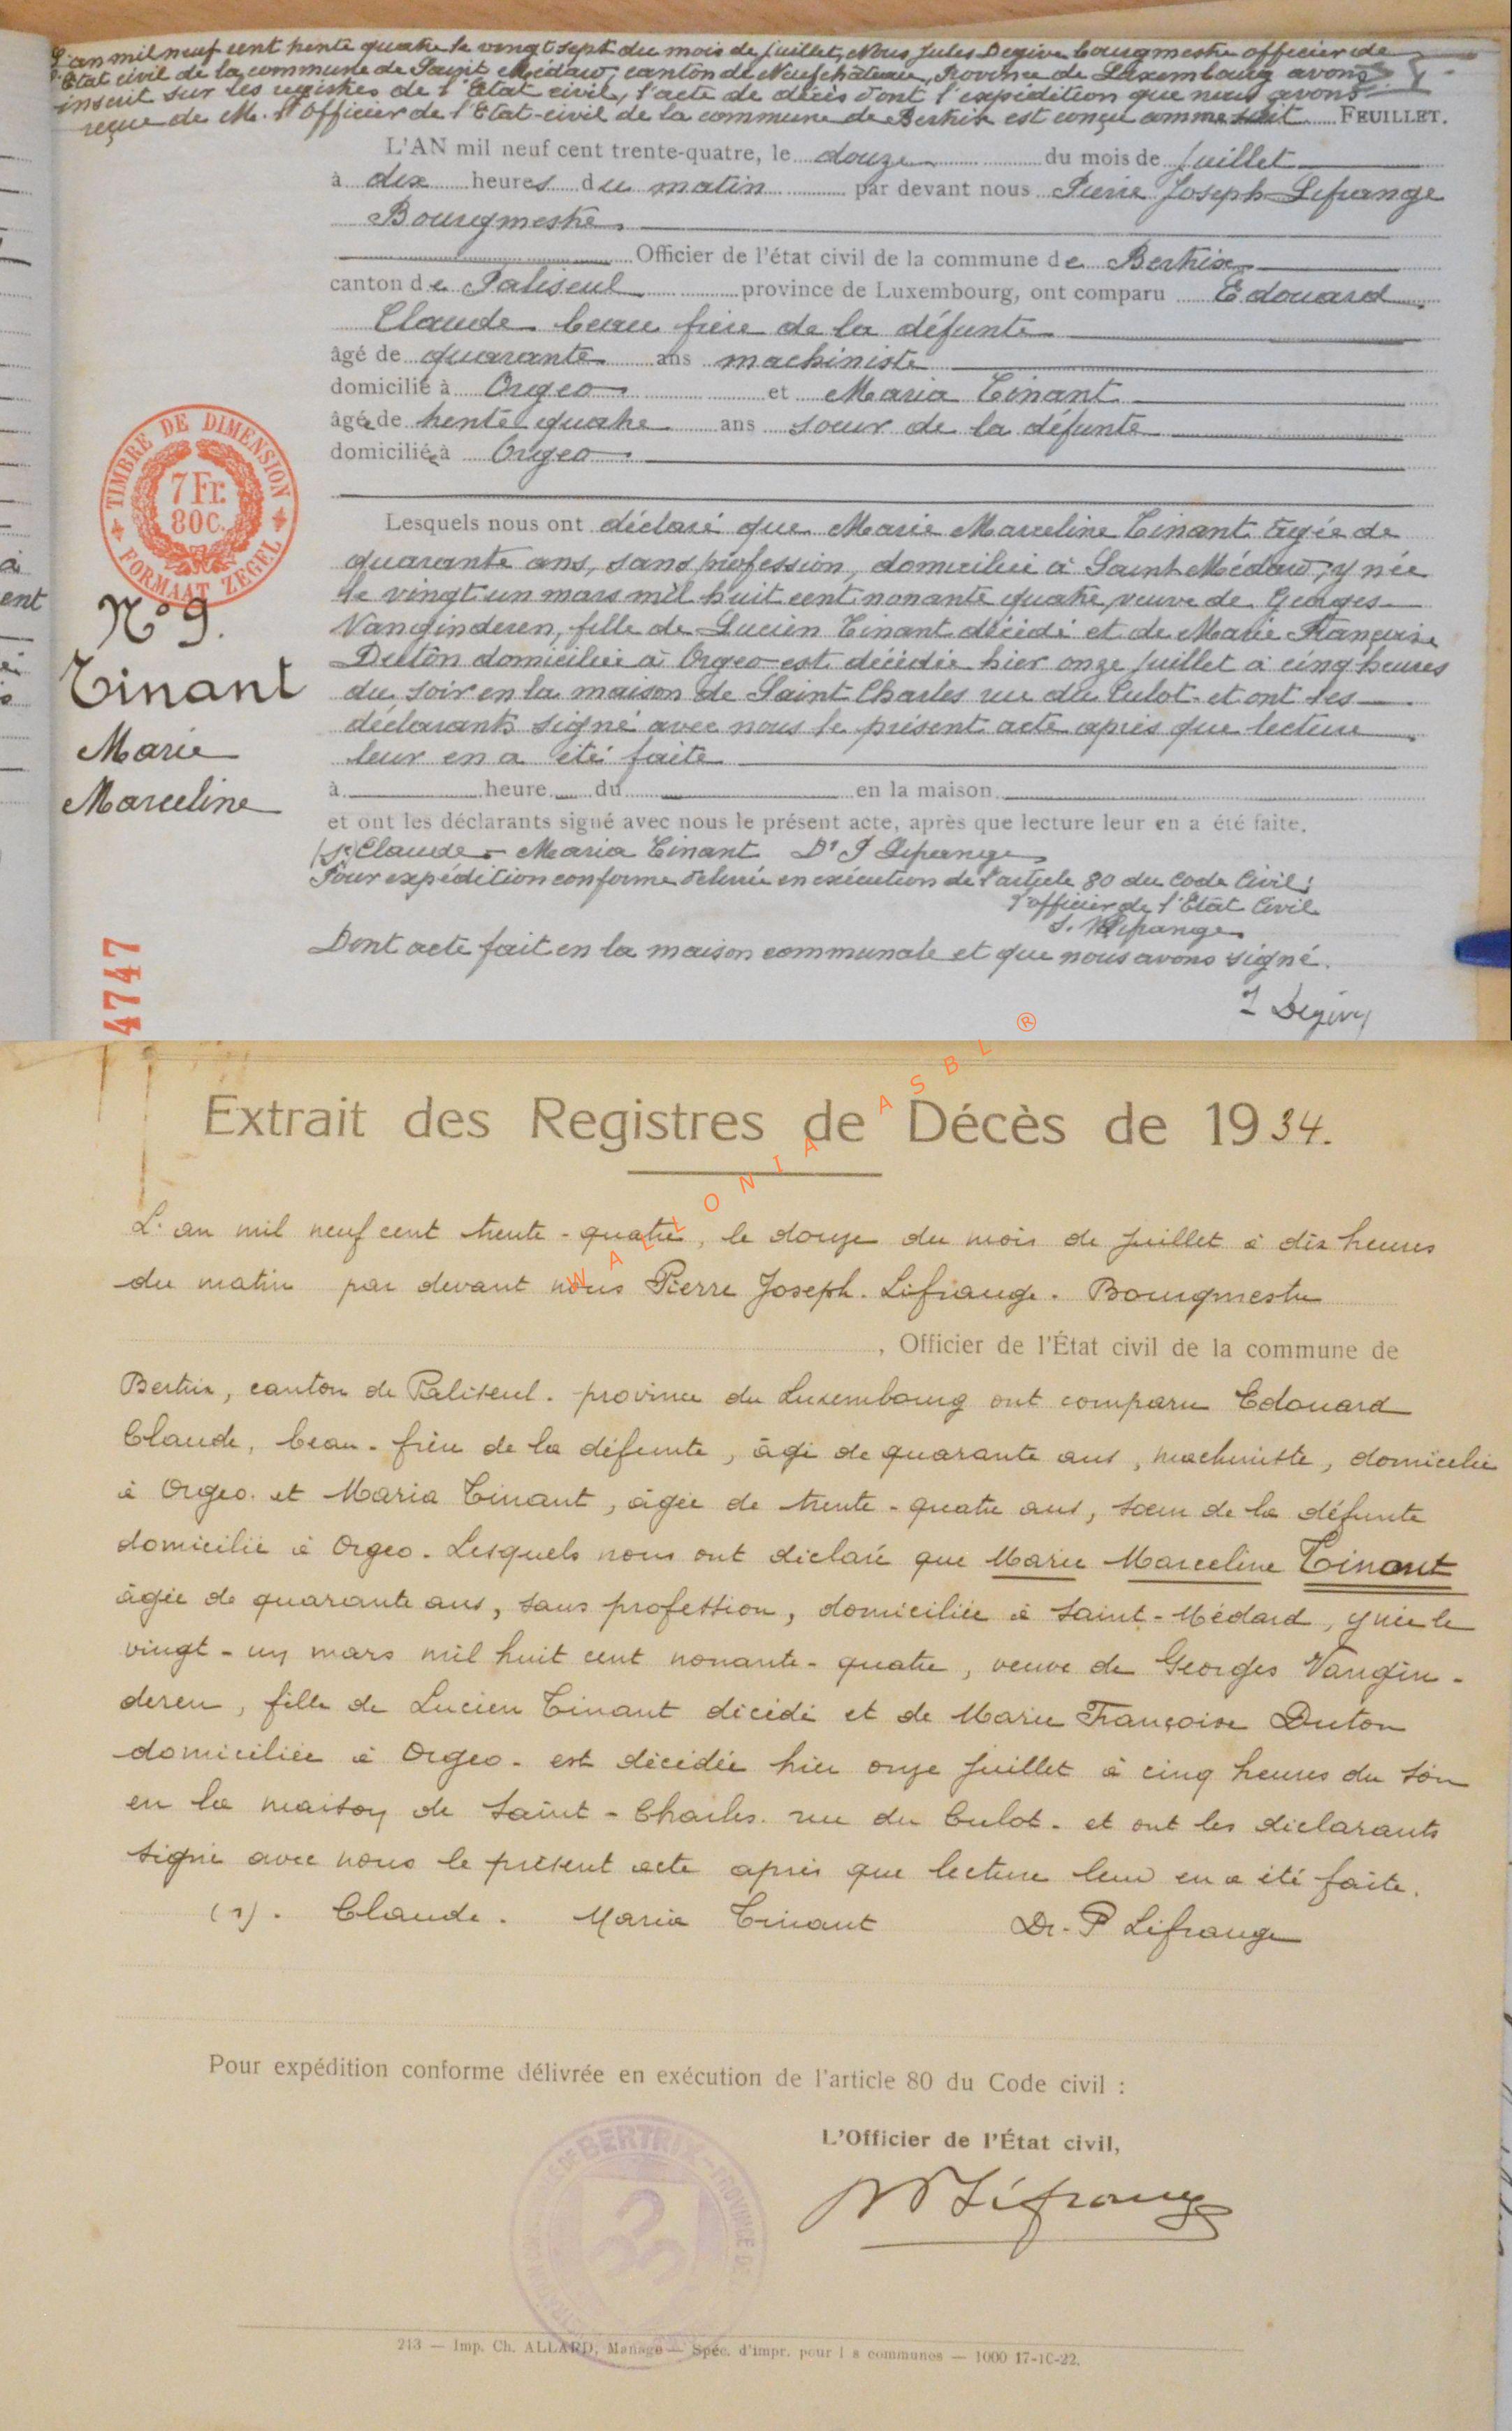 L'an mil neuf cent trente quatre le vingt sept du mois de juillet, Nous Jules Degive bourgmestre officier de
l'Etat civil de la commune de Saint Médard, canton de Neufchâteau, Province de Luxembourg avons
inscrit sur les registres de l'Etat civil, l'acte de décès dont l'expédition que nous avons
reçue de M. l'Officier de l'Etat-civil de la commune de Bertrix est conçu comme suit FEUILLET.
L'AN mil neuf cent trente-quatre, le douze du mois de juillet
à dix heures du matin par devant nous Pierre Joseph Lifrange
Bourgmestre
Officier de l'état civil de la commune de Bertrix
canton de Paliseul province de Luxembourg, ont comparu Edouard
Claude beau frère de la défunte
âgé de quarante ans machiniste
domicilié à Orgeo et Maria Tinant
âgée de trente quatre ans soeur de la défunte
domiciliée à Orgeo.
Lesquels nous ont déclaré que Marie Marceline Tinant âgée de
quarante ans, sans profession, domiciliée à Saint Médard, y née
le vingt un mars mil huit cent nonante quatre, veuve de Georges
Vanginderen, fille de Lucien Tinant décédé et de Marie Françoise
Duton domiciliée à Orgeo est décédée hier onze juillet à cinq heures
du soir en la maison de Saint Charles rue du Culot. et ont les
déclarants signé avec nous le présent acte après que lecture
leur en a été faite
à heure du en la maison
et ont les déclarants signé avec nous le présent acte, après que lecture leur en a été faite.
(s) Claude - Maria Tinant Dr P Lifrange
Pour expédition conforme délivrée en exécution de l'article 80 du Code Civil:
l'officier de l'Etat Civil
Lifrange
Dont acte fait en la maison communale et que nous avons signé.
J Degive
TIMBRE DE DIMENSION
7 Fr.
80 C.
FORMAAT ZEGEL
N° 9.
Tinant
Marie
Marceline
4747
à
ent
WALLONIA ASBL ®
Extrait des Registres de Décès de 1934.
L'an mil neuf cent trente-quatre, le douze du mois de juillet à dix heures
du matin par devant nous Pierre Joseph. Lifrange. Bourgmestre
, Officier de l'État civil de la commune de
Bertrix, canton de Paliseul. province du Luxembourg ont comparu Edouard
Claude, beau-frère de la défunte, âgé de quarante ans, machiniste, domicilié
à Orgeo. et Maria Tinant, âgée de trente-quatre ans, sœur de la défunte
domicilié à Orgeo. Lesquels nous ont déclaré que Marie Marceline Tinant
âgée de quarante ans, sans profession, domiciliée à Saint-Médard, y née le
vingt-un mars mil huit cent nonante-quatre, veuve de Georges Vangin-
deren, fille de Lucien Tinant décédé et de Marie Françoise Duton
domiciliée à Orgeo. est décédée hier onze juillet à cinq heures du soir
en la maison de Saint-Charles. rue du Culot. et ont les déclarants
signé avec nous le présent acte après que lecture leur en a été faite.
(s). Claude. Maria Tinant Dr. P Lifrange
Pour expédition conforme délivrée en exécution de l'article 80 du Code civil :
L'Officier de l'État civil,
Lifrange
BERTRIX - PROVINCE DE
213 — Imp. Ch. ALLARD, Manage — Spéc. d'impr. pour l s communes — 1000 17-10-22.